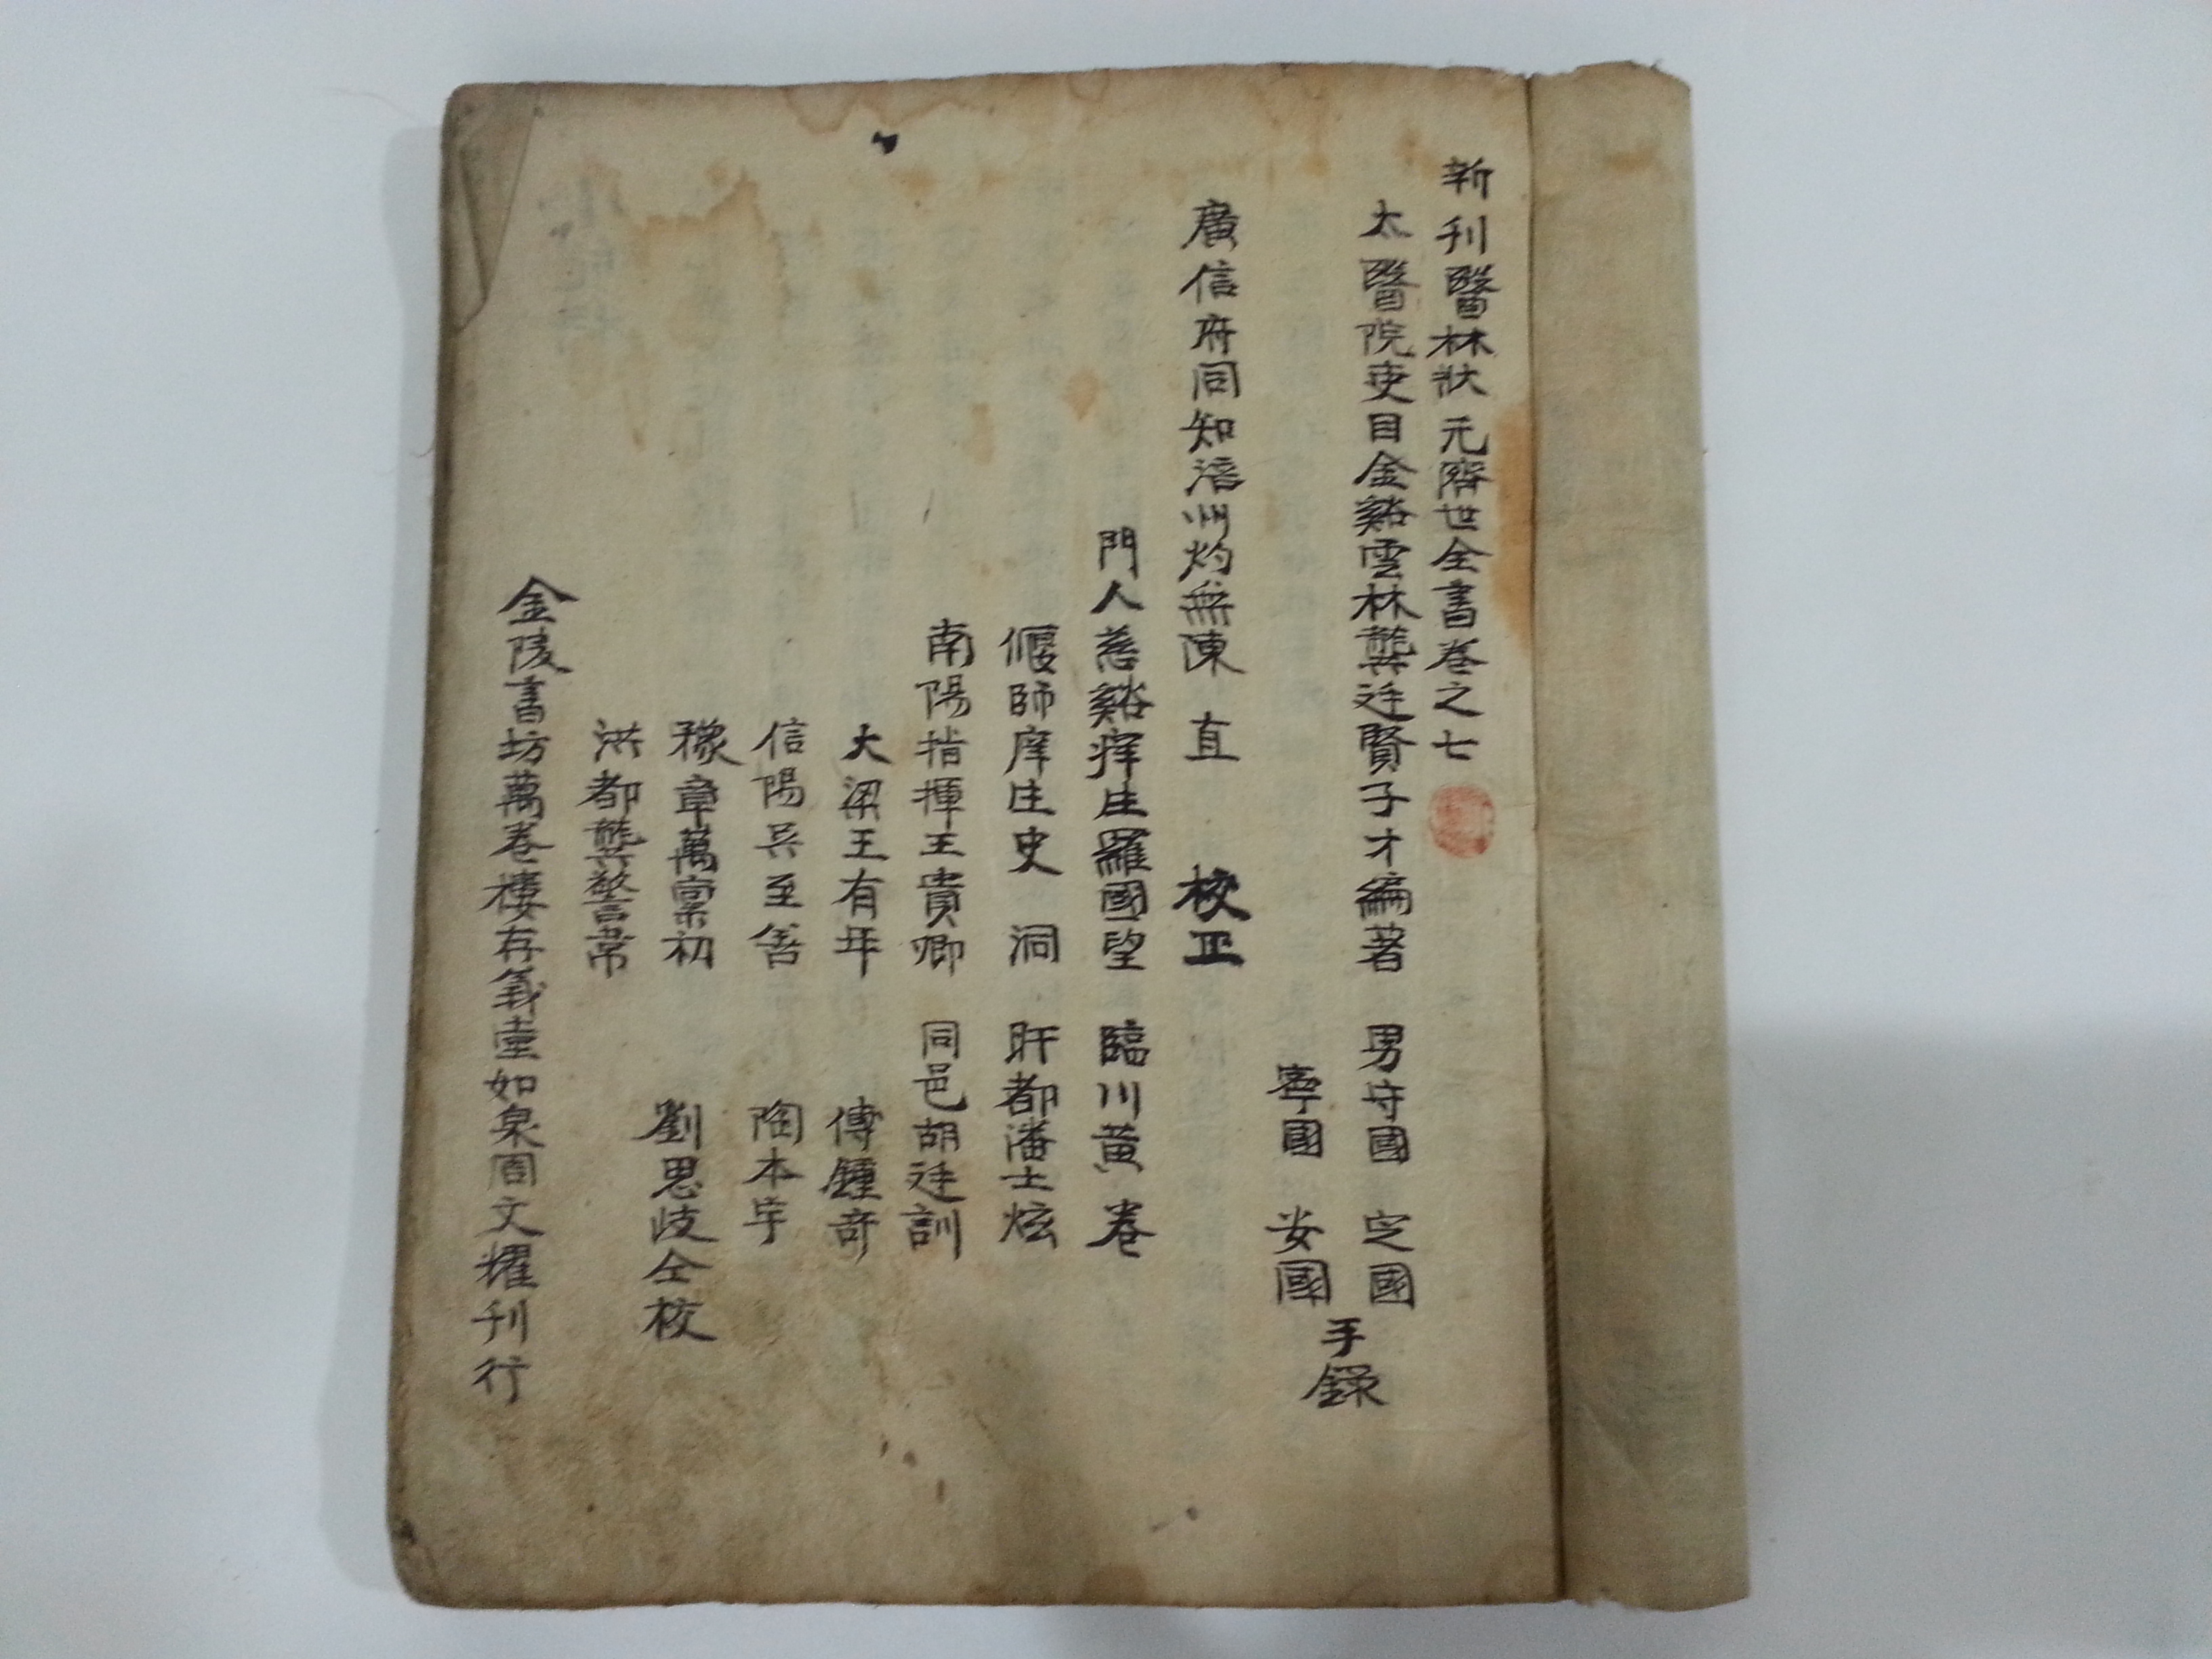 新刊醫林狀元濟世全書卷之七
太醫院吏目金谿雲林龔廷賢子才編著 男守國 定國
寧國 安國
手錄
廣信府同知涪洲灼無陳 直 校正
門人慈谿庠生羅國望 臨川黃 卷
偃師庠生史 洞 盱都潘士炫
南陽指揮王貴卿 同邑胡廷訓
大梁王有年 傅鍾奇
信陽吳至善 陶本学
豫章萬宗初 劉思歧仝校
洪都龔警常
金陵書坊萬卷樓存義堂如泉周文耀刊行